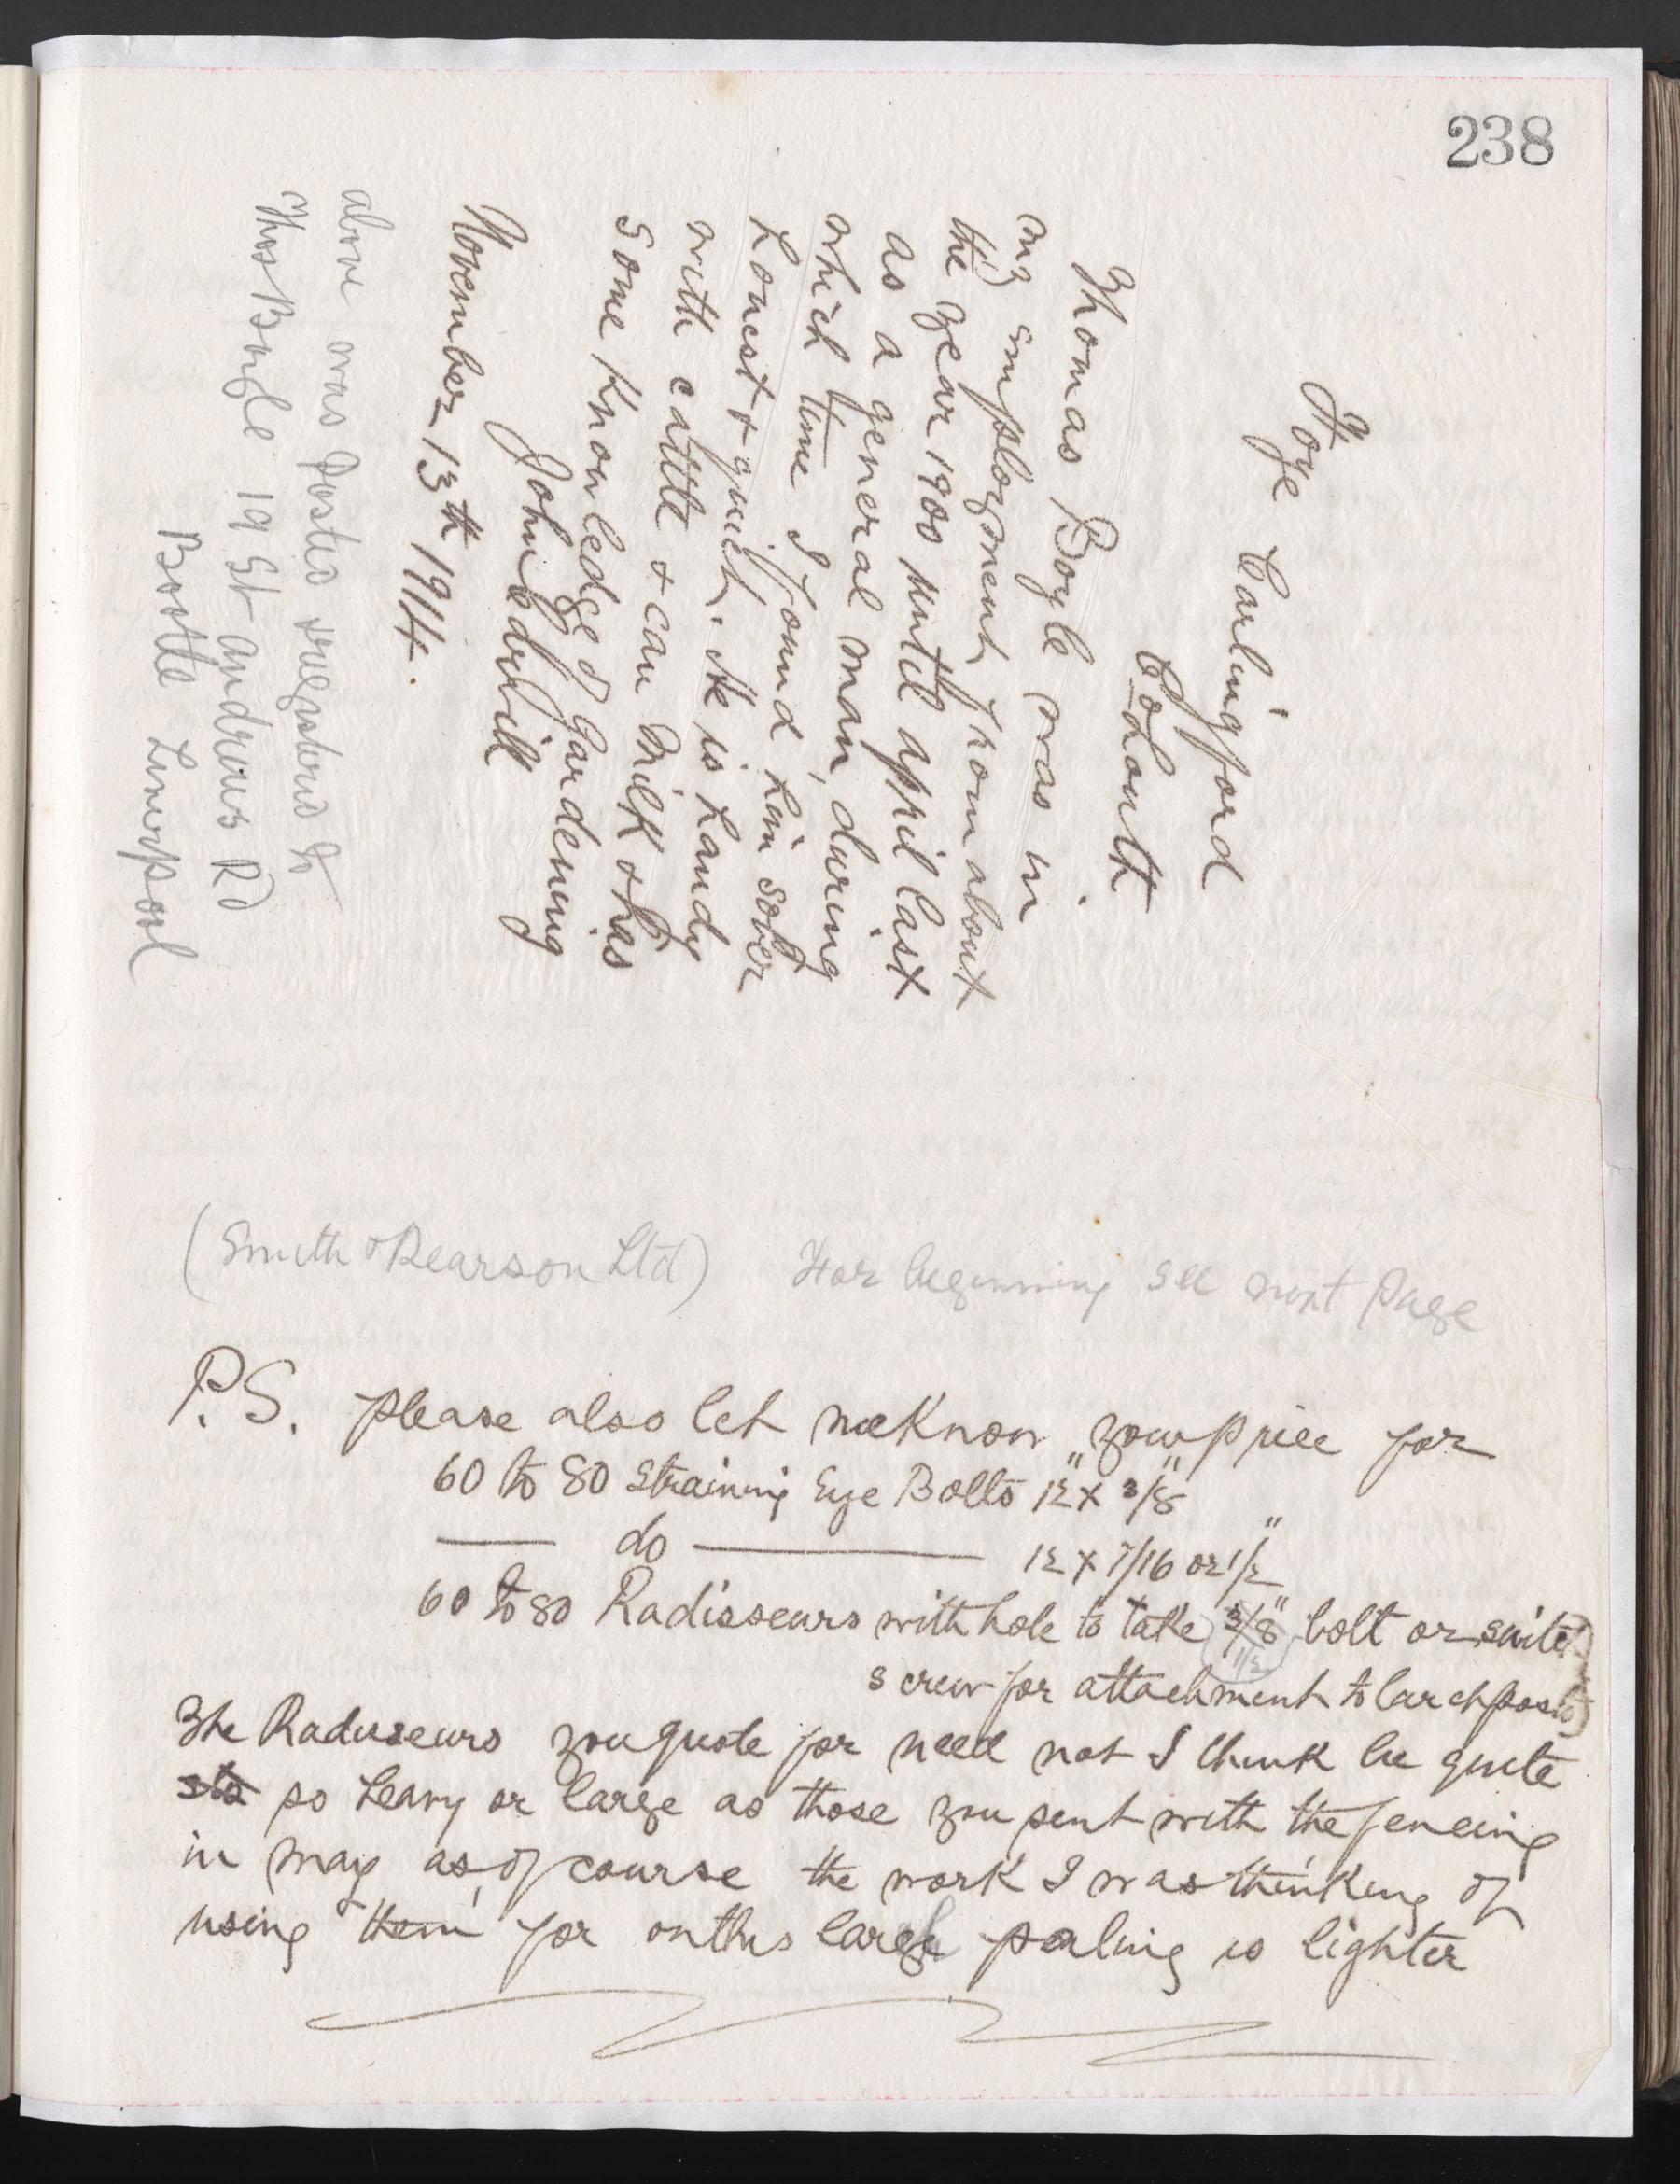 238
Foye Carlingford
Co Louth
Thomas Boyle was in
my employment from about
the year 1900 until April last
as a general man, during
which time I found him sober
honest & quiet. He is handy
with cattle & can milk & has
some knowledge of Gardening
John
November 13th 1914.
above was posted registered to
Thos Boyle 19 St Andrews Rd
Bootle Liverpool
(Smith & Pearson Ltd) For beginning see next page
P.S. please also let me know your price for
60 to 80 Straining Eye Bolts 12" x 3/8"
—— do —————— 12 x 7/16 or 1/2"
60 to 80 Radisseurs with hole to take 3/8" bolt or suite
1/2
screw for attachment to larch posts
The Radisseurs you quote for need not I think be quite
so heavy or large as those you sent with the fencing
in May as of course the work I was thinking of
using them for on this larch paling is lighter